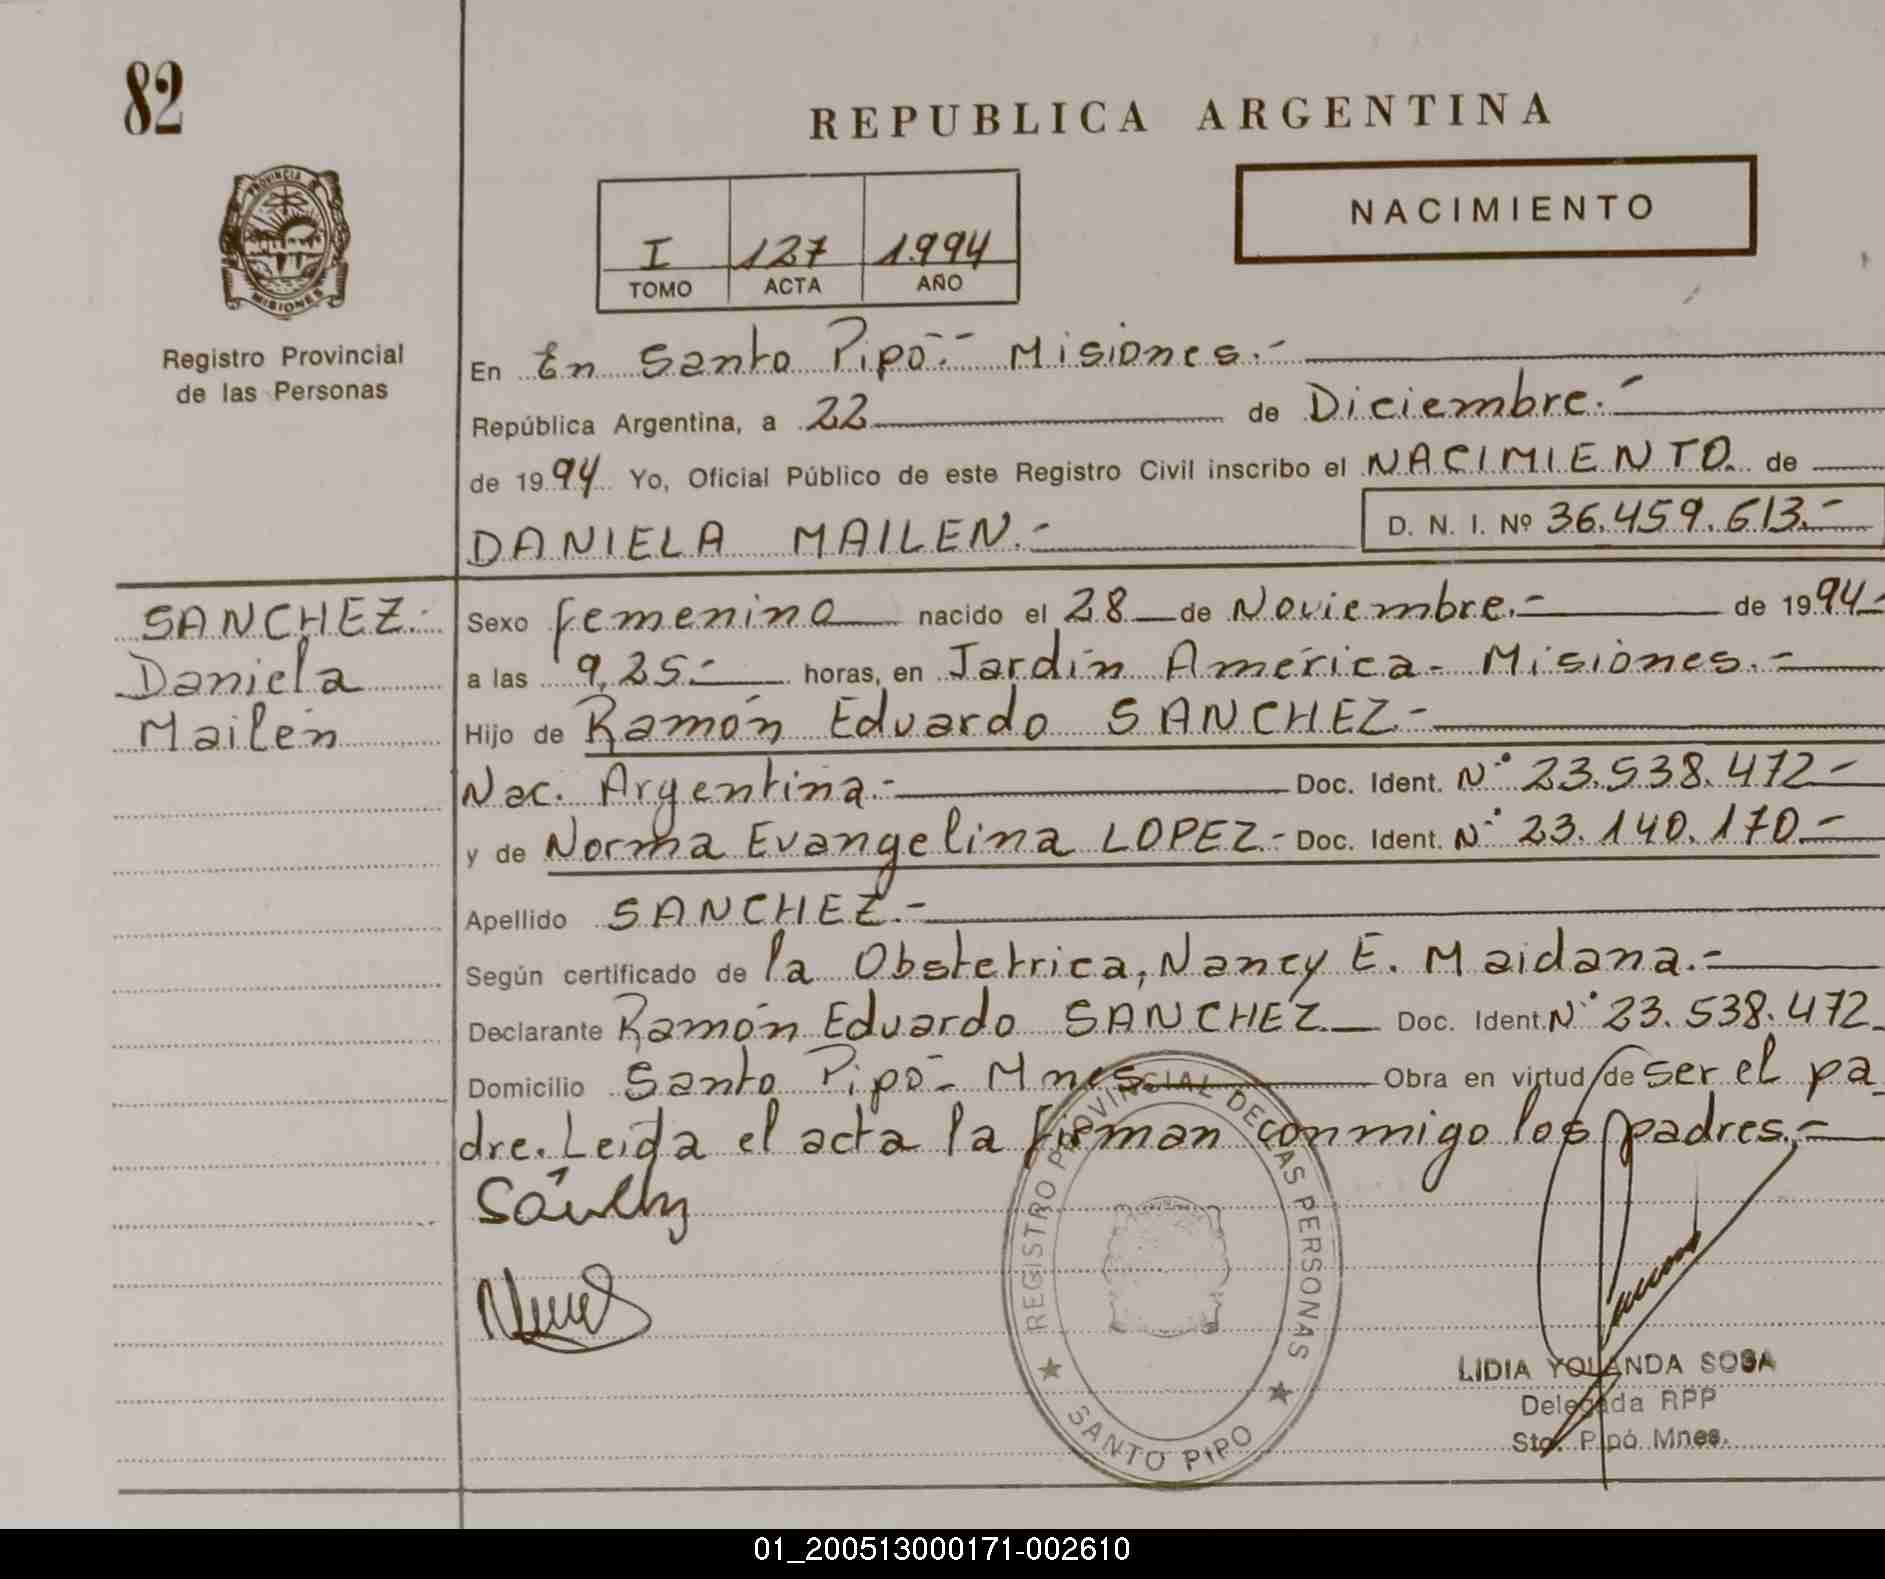 82
REPUBLICA ARGENTINA
PROVINCIA DE
MISIONES
I 127 1.994
TOMO ACTA AÑO
NACIMIENTO
Registro Provincial
de las Personas
En En Santo Pipó.- Misiones.-
República Argentina, a 22 de Diciembre.-
de 1994 Yo, Oficial Público de este Registro Civil inscribo el NACIMIENTO de
DANIELA MAILEN.- D. N. I. Nº 36.459.613.-
SANCHEZ.-
Daniela
Mailén
Sexo femenino nacido el 28 de Noviembre.- de 1994-
a las 9,25.- horas, en Jardín América - Misiones.-
Hijo de Ramón Eduardo SANCHEZ.-
Nac. Argentina.- Doc. Ident. Nº 23.538.472-
y de Norma Evangelina LOPEZ.- Doc. Ident. Nº 23.140.170.-
Apellido SANCHEZ.-
Según certificado de la Obstetrica, Nancy E. Maidana.-
Declarante Ramón Eduardo SANCHEZ Doc. Ident. Nº 23.538.472
Domicilio Santo Pipó - Mnes. Obra en virtud de ser el pa
dre. Leída el acta la firman conmigo los padres.-
REGISTRO PROVINCIAL DE LAS PERSONAS
SANTO PIPO
LIDIA YOLANDA SOSA
Delegada RPP
Sto. Pipó Mnes.
01_200513000171-002610